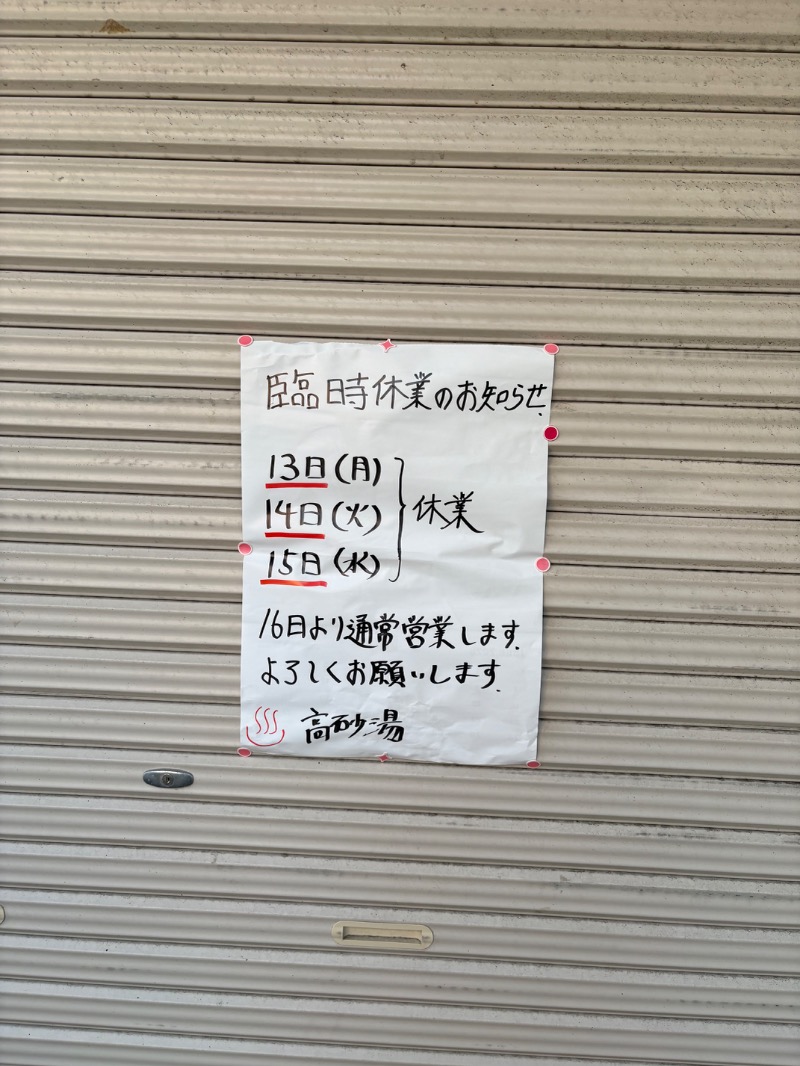 臨時休業のお知らせ.
13日(月)
14日(火) 休業
15日(水)
16日より通常営業します.
よろしくお願いします.
♨ 高砂湯